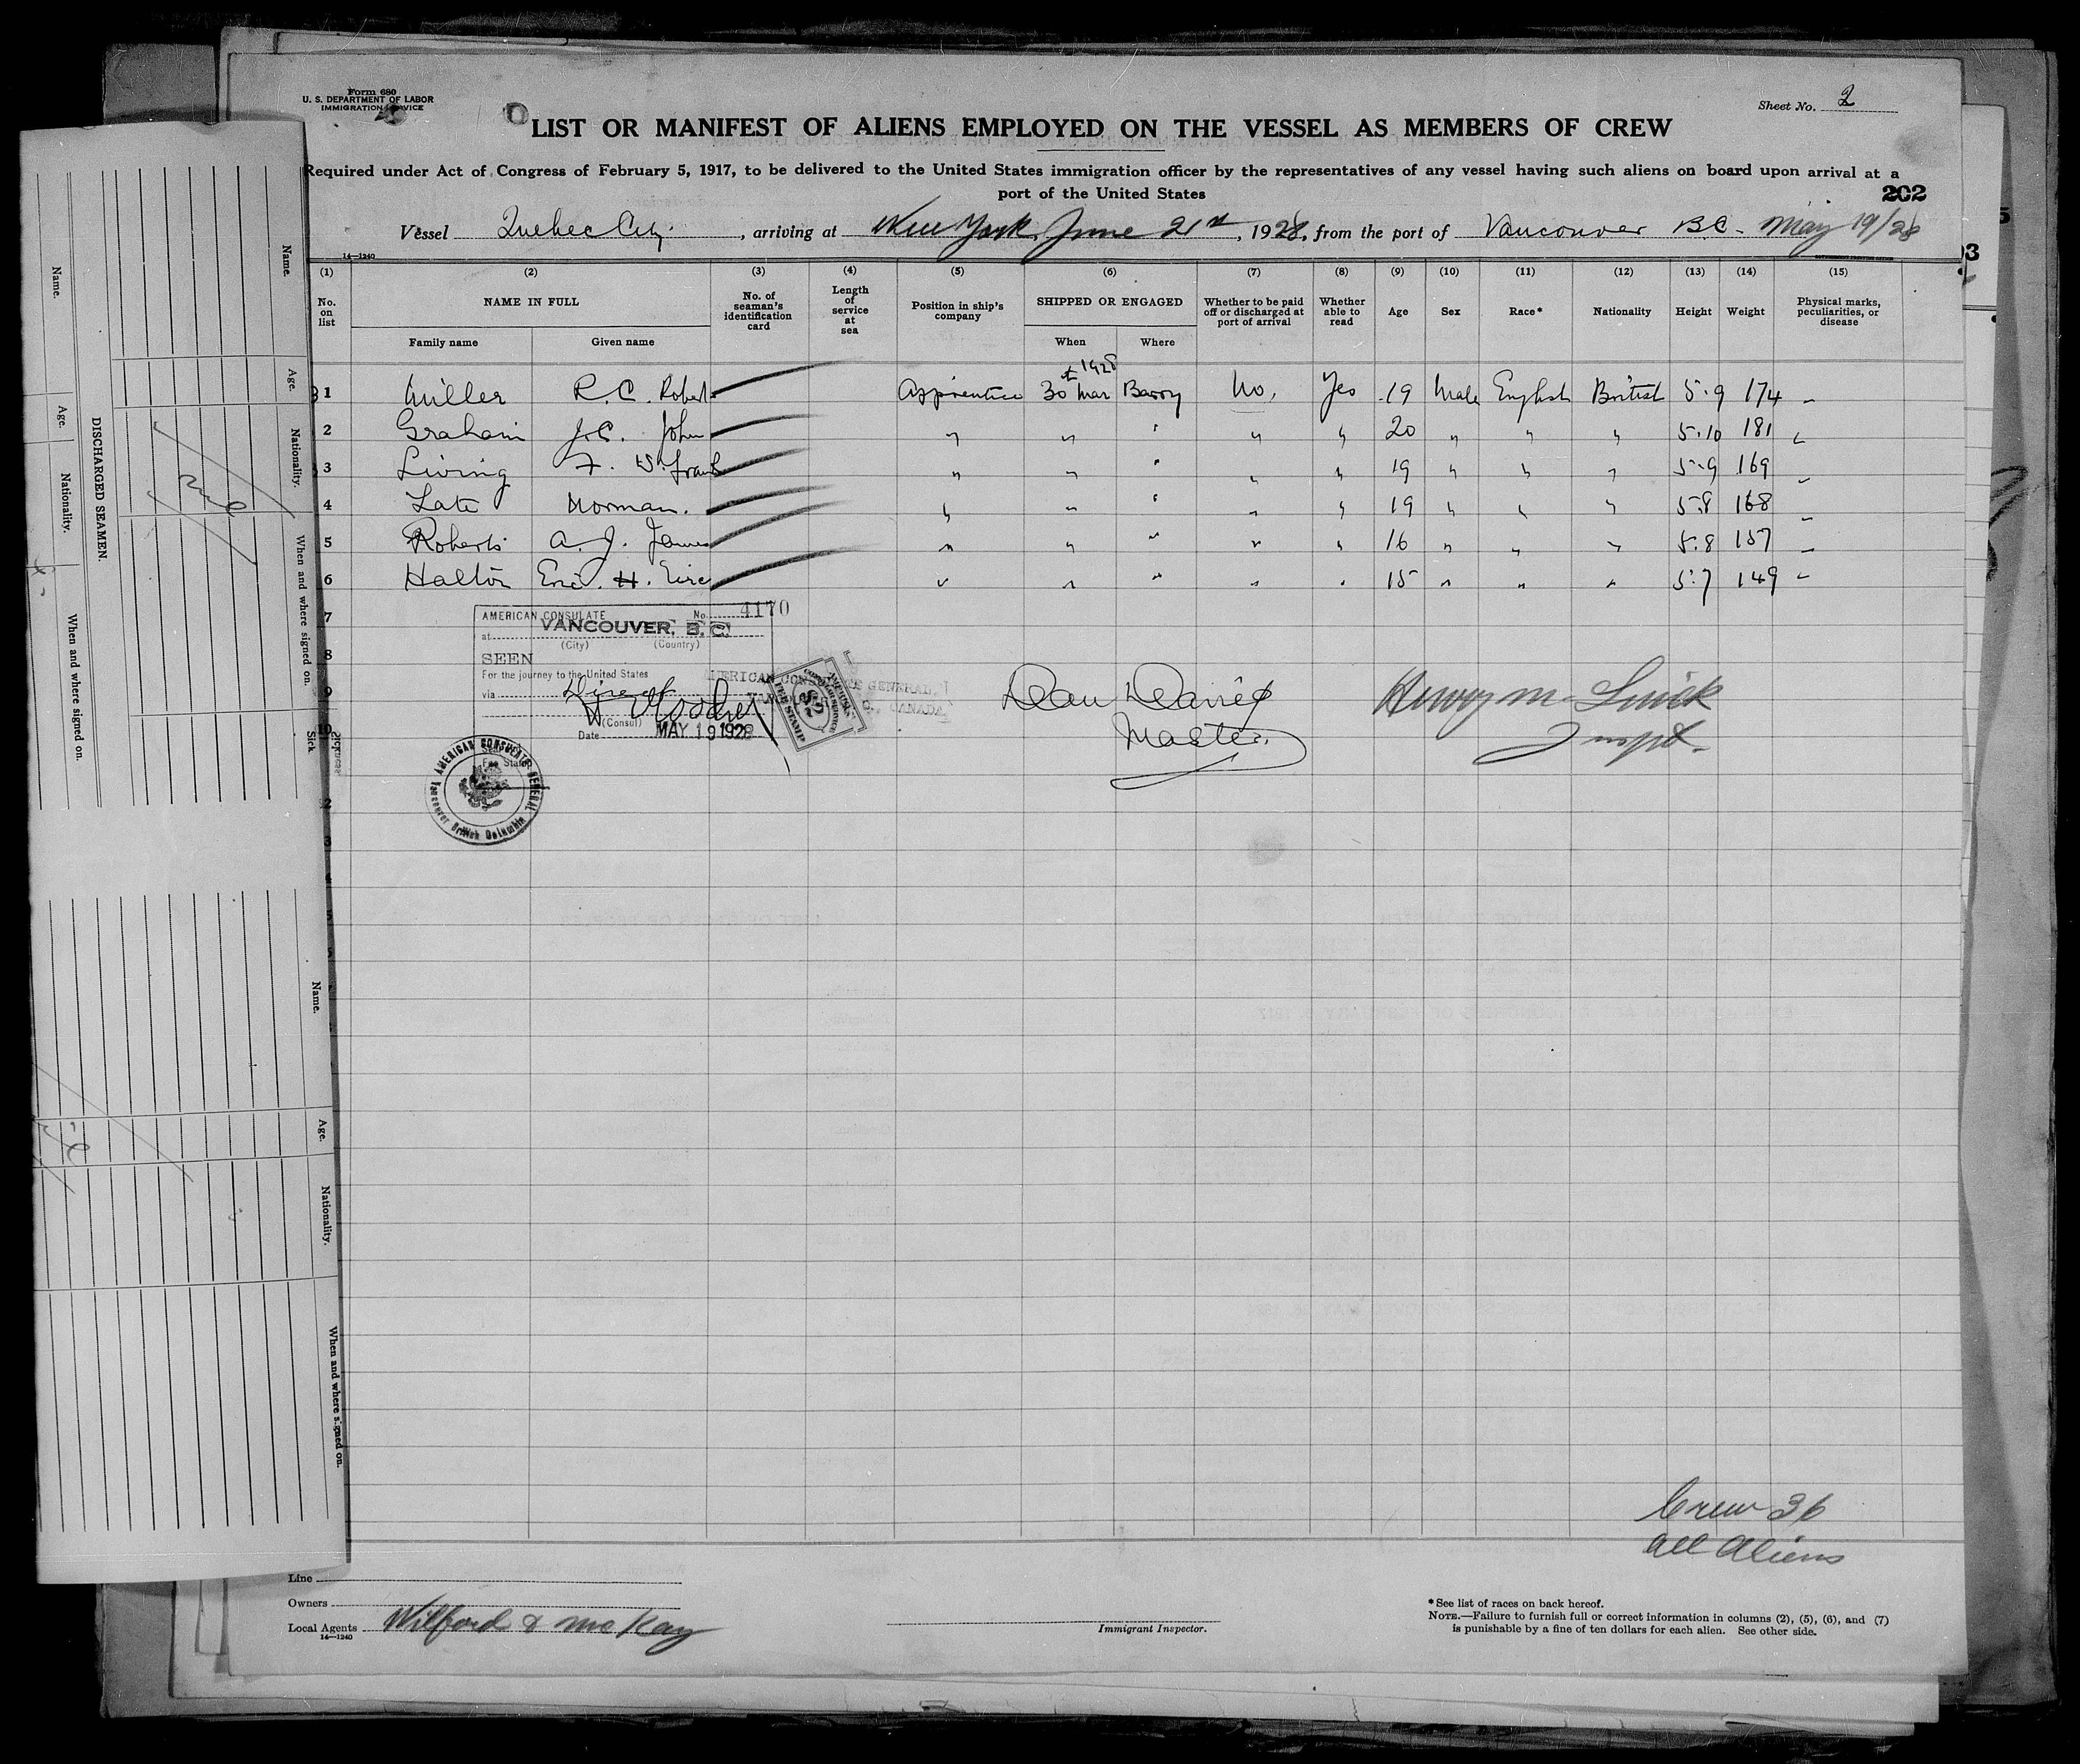 Form 680
U. S. DEPARTMENT OF LABOR
IMMIGRATION SERVICE
Sheet No. 2
LIST OR MANIFEST OF ALIENS EMPLOYED ON THE VESSEL AS MEMBERS OF CREW
Required under Act of Congress of February 5, 1917, to be delivered to the United States immigration officer by the representatives of any vessel having such aliens on board upon arrival at a
port of the United States
202
Vessel Quebec City, arriving at New York, June 21st, 1928, from the port of Vancouver B.C. May 19/28
14—1240
(1) (2) (3) (4) (5) (6) (7) (8) (9) (10) (11) (12) (13) (14) (15)
No. on list NAME IN FULL No. of seaman's identification card Length of service at sea Position in ship's company SHIPPED OR ENGAGED Whether to be paid off or discharged at port of arrival Whether able to read Age Sex Race* Nationality Height Weight Physical marks, peculiarities, or disease
Family name Given name When Where
1 Miller R. C. Robert Apprentice 30th Mar 1928 Barry No. Yes 19 Male English British 5.9 174 -
2 Graham J. C. John " " " " " 20 " " " 5.10 181
3 Living F. W. Frank " " " " " 19 " " " 5.9 169 -
4 Late Norman. " " " " " 19 " " " 5.8 168 -
5 Roberts A. J. James " " " " " 16 " " " 5.8 157 -
6 Halton Eric. H. Eric " " " " " 15 " " " 5.7 149 -
7
8
9
10
AMERICAN CONSULATE No. 4170
at VANCOUVER, B. C.
(City) (Country)
SEEN
For the journey to the United States
via Direct
(Consul)
Date MAY 19 1928
Fee Stamp
AMERICAN CONSULATE GENERAL
Vancouver British Columbia
AMERICAN CONSULATE GENERAL,
CANADA
Dan Davies
Master.
Inspt.
DISCHARGED SEAMEN.
Name.
Age.
Nationality.
When and where signed on.
Name.
Age.
Nationality.
When and where signed on.
Sick
Name.
Age.
Nationality.
When and where signed on.
Crew 36
all Aliens
Line
Owners
Local Agents Wilford & McKay
14—1240
Immigrant Inspector.
*See list of races on back hereof.
NOTE.—Failure to furnish full or correct information in columns (2), (5), (6), and (7)
is punishable by a fine of ten dollars for each alien. See other side.